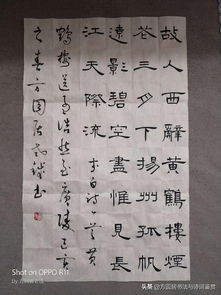 故人西辭黃鶴樓煙
花三月下揚州孤帆
遠影碧空盡惟見長
江天際流 李白詩一首黃
鶴樓送孟浩然至廣陵己亥
之春方圓居書
Shot on OPPO R11
头条@方圆居书法与诗词鉴赏